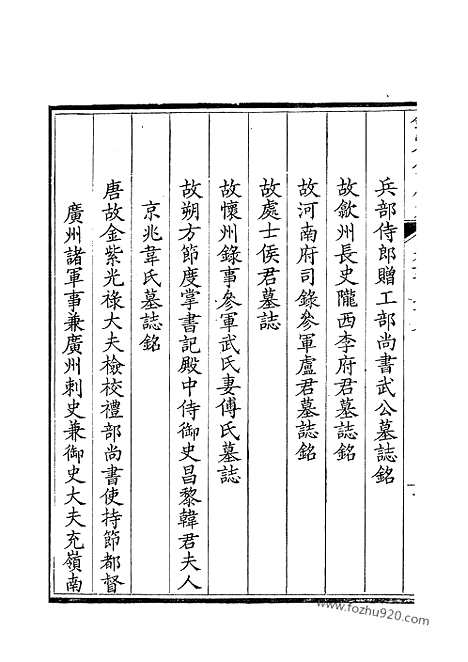 兵部侍郎贈工部尚書武公墓誌銘
故歙州長史隴西李府君墓誌銘
故河南府司錄參軍盧君墓誌銘
故處士侯君墓誌
故懷州錄事參軍武氏妻傅氏墓誌
故朔方節度掌書記殿中侍御史昌黎韓君夫人
京兆韋氏墓誌銘
唐故金紫光祿大夫檢校禮部尚書使持節都督
廣州諸軍事兼廣州刺史兼御史大夫充嶺南
www.fozhu920.com